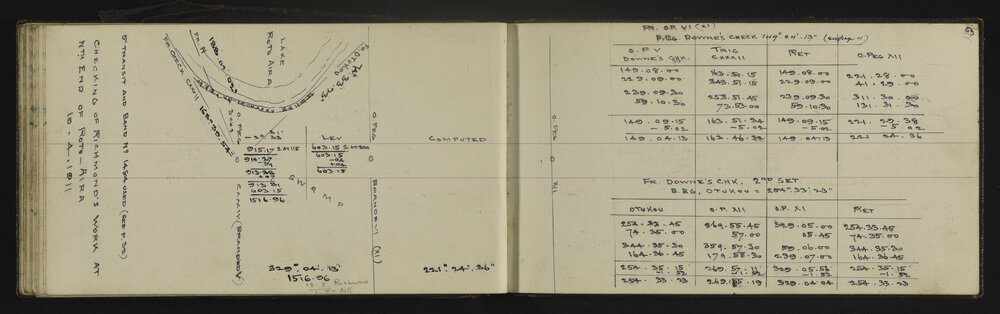 CHECKING OF RICHMOND'S WORK AT
NTH END OF ROTO-AIRA
10-4-1911
5" TRANSIT AND BAND No 1484 USED (SEE P. 39)
LAKE
ROTO AIRA
FR. N
FR. CHECK CXXXII
O PEG
915.17 S. AT 115
913.91
603.15
1516.96
LEV
603.15 S. AT 305
603.15
603.15
SWAMP
O PEG
COMPUTED
329° 04' 13"
1516.96
221° 24' 36"
O PEG
XII
53
FR. O.P. VI (XI)
F.BG. DOWNE'S CHECK 149° 04' 13"
O.P. V
DOWNE'S CHK.
TRIG
CXXXII
RET
O. PEG XII
149.08.00 163.50.15 149.08.00 221.28.00
229.09.00 243.51.15 229.09.00 41.29.00
239.09.30 253.51.45 239.09.30 311.30.00
59.10.30 73.53.00 59.10.30 131.31.30
149.09.15 163.51.34 149.09.15 221.29.38
-5.02 -5.02 -5.02 -5.02
149.04.13 163.46.32 149.04.13 221.24.36
FR. DOWNE'S CHK. 2ND SET
B.BG. OTUKOU = 254° 33' 23"
OTUKOU O.P. XII O.P. XI RET
254.33.45 269.55.45 329.05.00 254.33.45
74.35.00 57.00 05.45 74.35.00
344.35.30 359.57.30 59.06.00 344.35.30
164.36.45 179.58.30 239.07.00 164.36.45
254.35.15 269.57.11 329.05.56 254.35.15
-1.52 -1.52 -1.52 -1.52
254.33.23 269.55.19 329.04.04 254.33.23